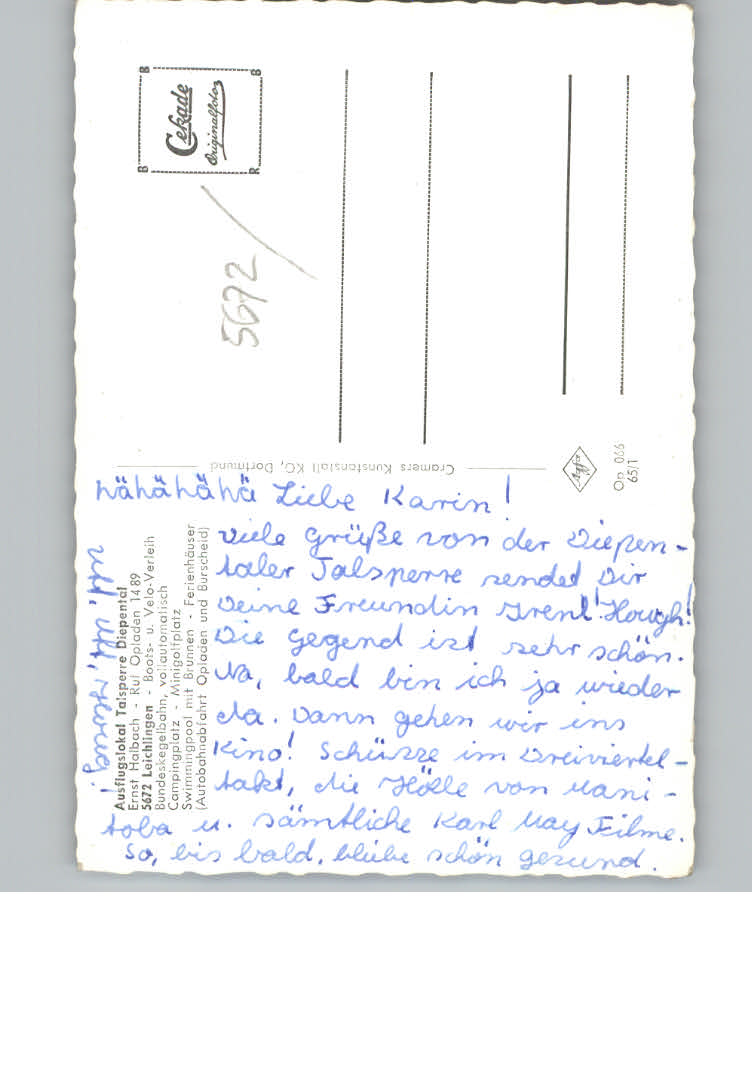 B
B
B
R
Cekade
Originalfoto
5672
Cramers Kunstanstalt KG, Dortmund
Agfa
Op 066
65/1
Ausflugslokal Talsperre Diepental
Ernst Halbach - Ruf Opladen 14 89
5672 Leichlingen - Boots- u. Velo-Verleih
Bundeskegelbahn, vollautomatisch
Campingplatz - Minigolfplatz
Swimmingpool mit Brunnen - Ferienhäuser
(Autobahnabfahrt Opladen und Burscheid)
hähähähä Liebe Karin!
Viele Grüße von der Diepen-
taler Talsperre sendet Dir
Deine Freundin Irene! Hough!
Die Gegend ist sehr schön.
Na, bald bin ich ja wieder
da. Dann gehen wir ins
Kino! Schüsse im Dreiviertel-
takt, die Hölle von Mani-
toba u. sämtliche Karl May Filme.
So, bis bald, bleibe schön gesund.